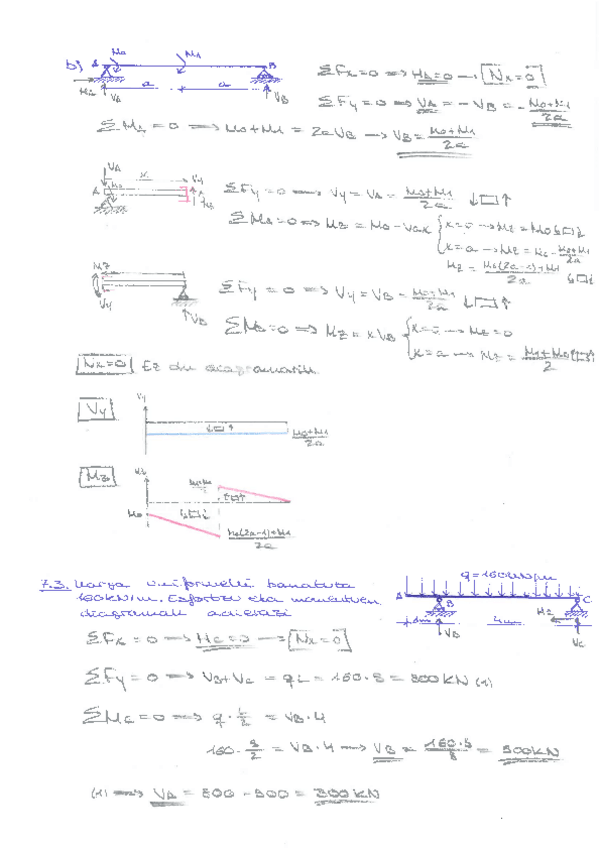 b) A M₀ M₁ B
H₂ V_A a a V_B
ΣFx=0 ⟹ H_A=0 → Nx=0
ΣFy=0 ⟹ V_A = -V_B = -(M₀+M₁)/2a
ΣM_A = 0 ⟹ M₀+M₁ = 2aV_B → V_B = (M₀+M₁)/2a
V_A x
A M₀
ΣFy=0 ⟹ Vy = V_A = (M₀+M₁)/2a ↓□↑
ΣM_B=0 ⟹ M_z = M₀ - V_A x
x=0 → M_z = M₀
x=a → M_z = M₀ - (M₀+M₁)/2a
M_z = (M₀(2a-1)+M₁)/2a
M_z Vy V_B
ΣFy = 0 ⟹ Vy = V_B = (M₀+M₁)/2a ↓□↑
ΣM_B=0 ⟹ M_z = xV_B
x=0 → M_z = 0
x=a → M_z =
Nx=0 Ez du diagramarik
Vy Vy ↓□↑ (M₀+M₁)/2a
M_z
M₀ (M₀(2a-1)+M₁)/2a
7.3. Karga uniformeki banatuta
160kN/m. Esfortzu eta momentuen
diagramak adierazi
q=160kN/m
A B C
1m 4m H₂ V_B V_C
ΣFx = 0 ⟹ H_C=0 → Nx=0
ΣFy=0 ⟹ V_B+V_C = qL = 160·5 = 800KN (1)
ΣM_C=0 ⟹ q· = V_B·4
160· = V_B·4 ⟹ V_B = = 500KN
(1) ⟹ V_A = 800 - 500 = 300KN